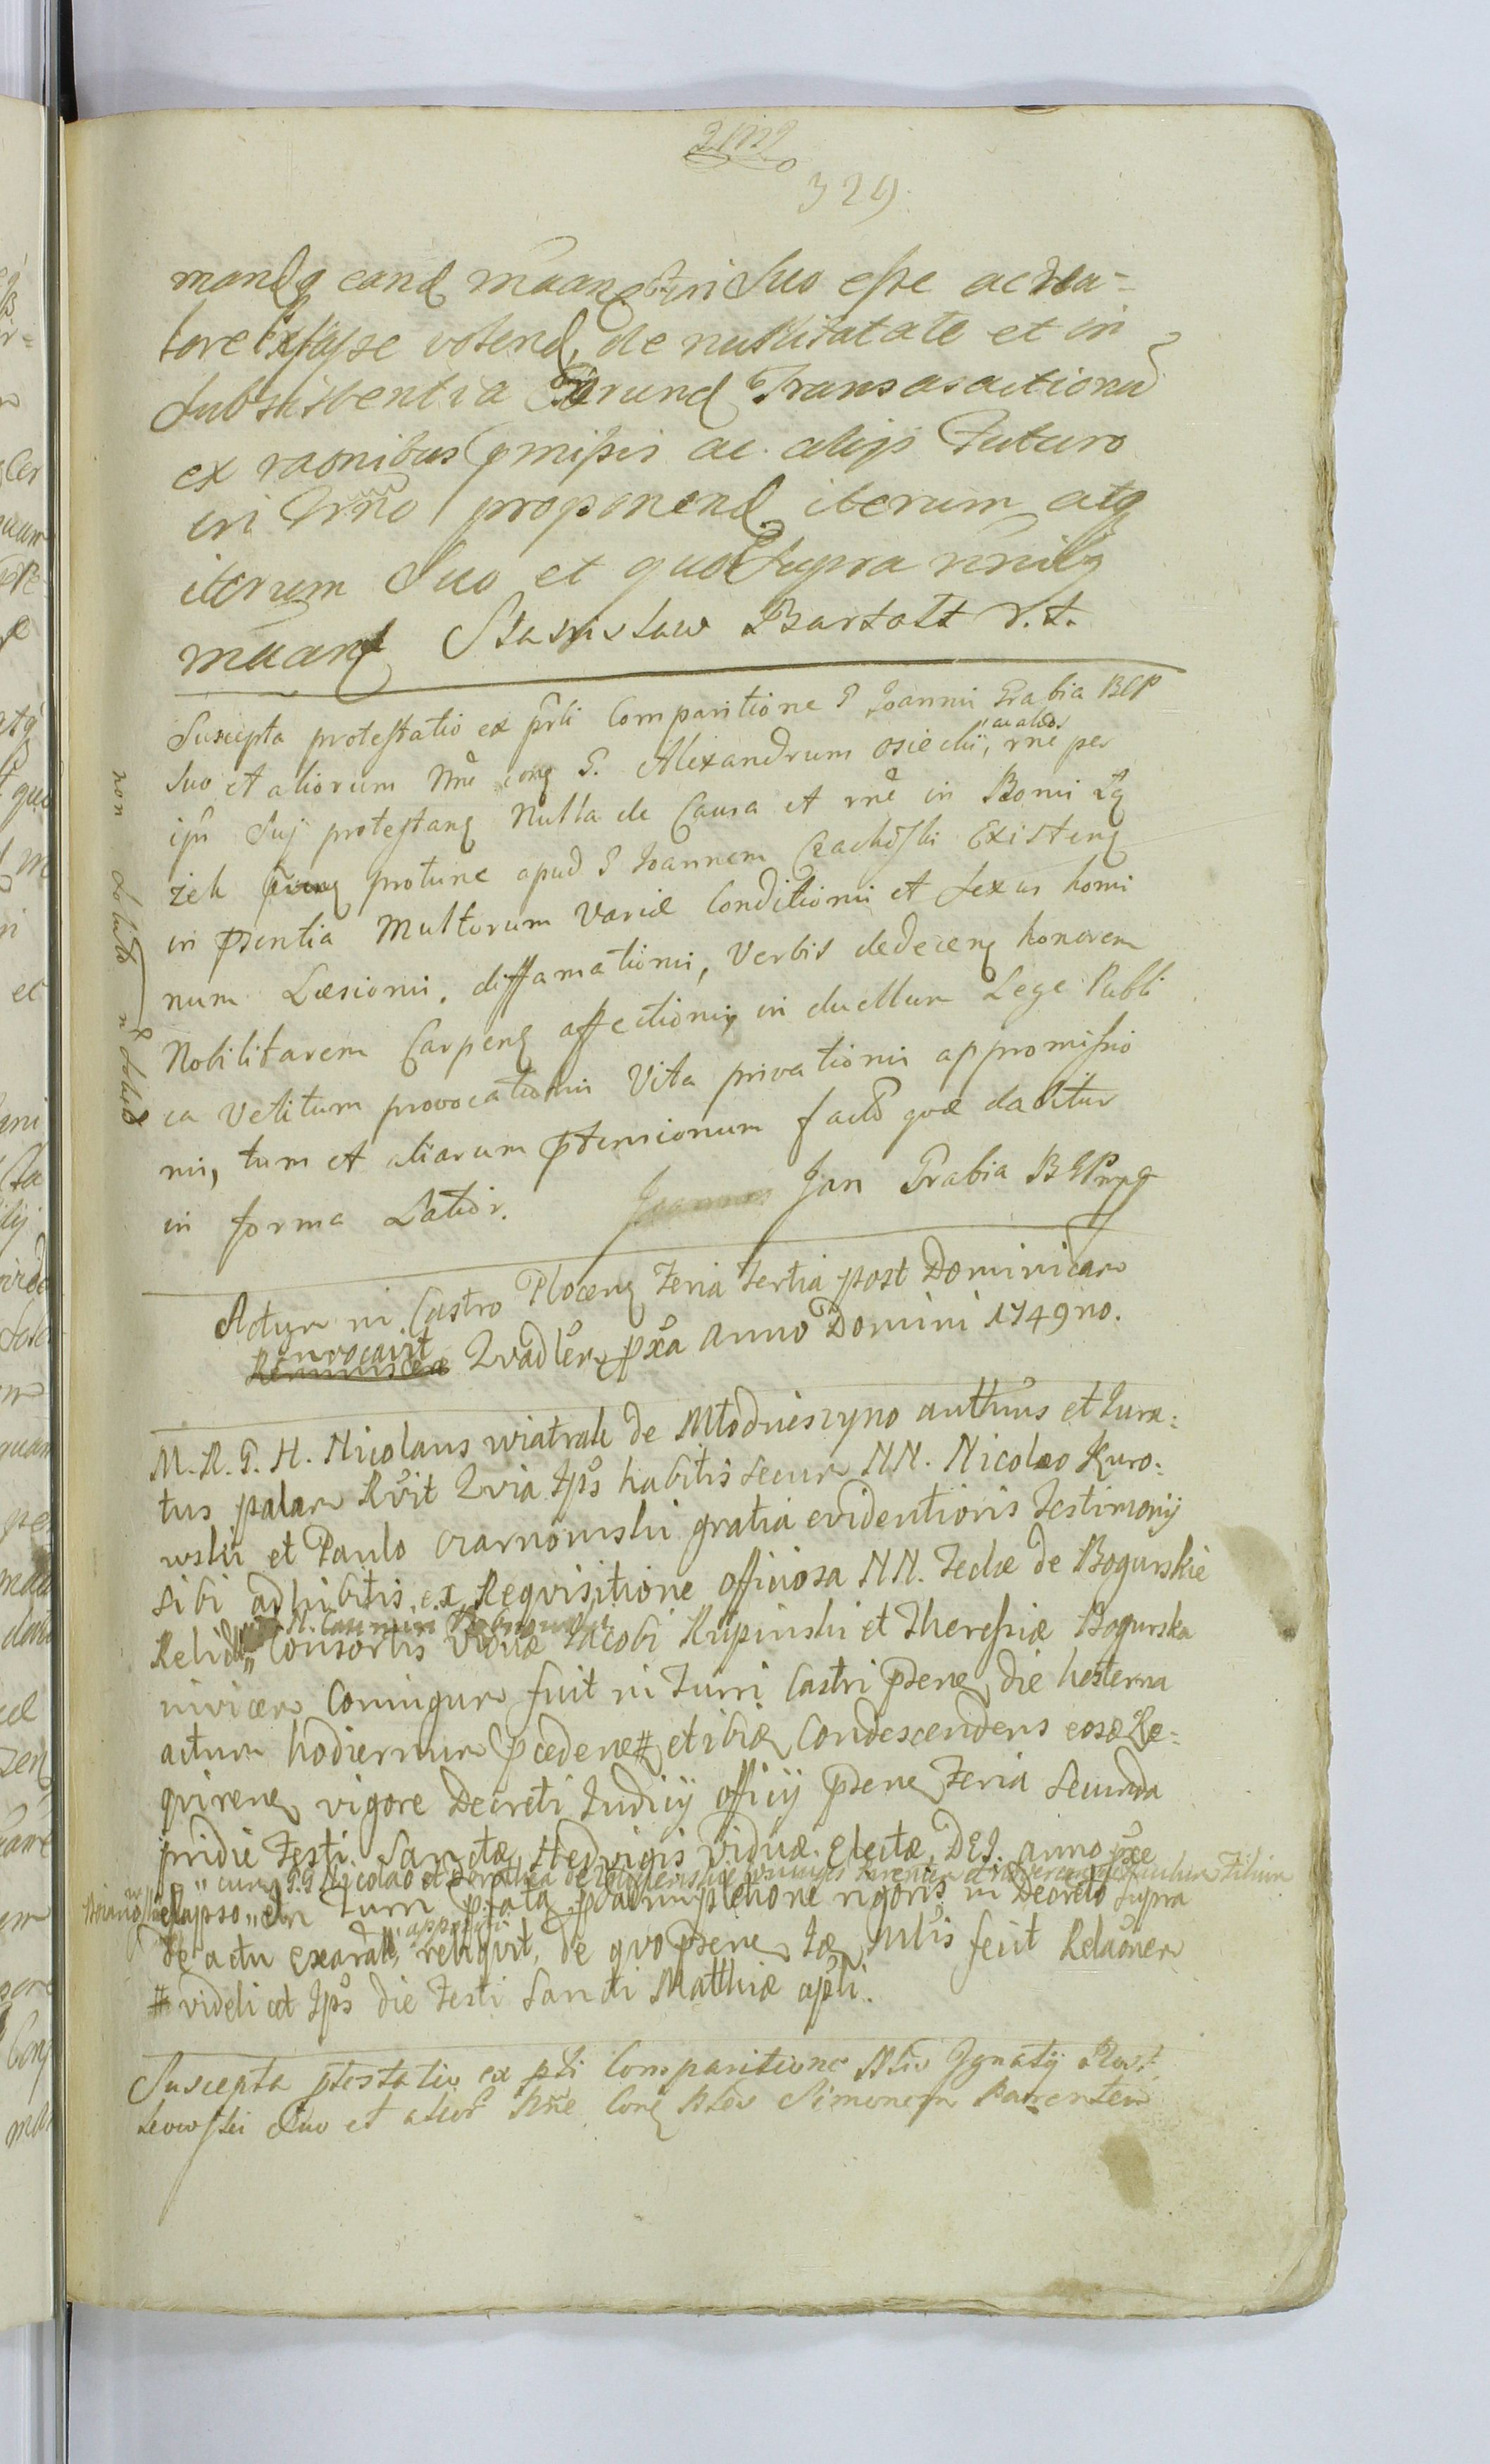 329
mandq eand maan in Suo esse ac va=
lore Extitisse volend, de nullitatate et in
Subsistentia Eorund Transasactionu
ex raonibus pmissis ac alijs Futuro
in Trno proponend iterum atq
iterum Suo et quo Supra nnibq
maanf Stanislaw Bartolt r.t.
Suscepta protestatio ex prli Comparitione G Joannis Grabia BCP
Suo et aliorum nne cong G. Alexandrum osiecki, rne per
ipm Suj protestang Nulla de Causa et rne in Bomi
zek protunc apud G Joannem Czachoski Existeng
in psentia Multorum Variæ Conditionis et Sexus homi
num Læsionis, diffamationis, Verbis dedeceng honorem
Nobilitarem Carpeng affectionis, in duellum Lege Publi
ca Vetitum provocationis Vita privationis appromissio
nis, tum et aliarum ptensionum facto quæ dabitur
in forma Latior. Jan Grabia BCPmpa
non soluto n solut
Actum in Castro Ploceng Feria Tertia post Dominicam
Invocavit
Reminiscere Qvadler pxa anno Domini 1749no.
M. R. G. H. Nicolaus wiatrak de Młodzieszyno authus et Jura=
tus palam Rvit Qvia Ips habitis secum NN. Nicolao Kuro=
wski et Paulo czarnomski gratia evidentioris Testimonij
sibi adhibitis, ex Reqvisitione officiosa NN. Feclæ de Bogurskie
N. Casimiri
Relictæ Consortis Viduæ Jacobi Rupinski et Theressiæ Bogurska
invicem Coniugum fuit in Turri Castri psene, die hesterna
actum hodiernum pcedene # et ibiq Condescendens eosq Re=
qvirene vigore Decreti Judicij officij psene Feria Secunda
pridie Festi Sanctæ Hedvigis Viduæ Electæ, DEJ. anno pxe
cum GG Nicolao et Dorothea de
elapso in Turri pfata pro adimpletione rigoris in Decreto Supra
appositi
de actu exarati reliqvit, de qvo psene Iæ Mlis fecit Relaonem
# videlicet Ips die Festi Sancti Matthiæ apli.
Suscepta ptestatio ex pli Comparitione Nlis Ignatij Rost
kowski Suo et alior Nne Cong Nles Simonem Parentem